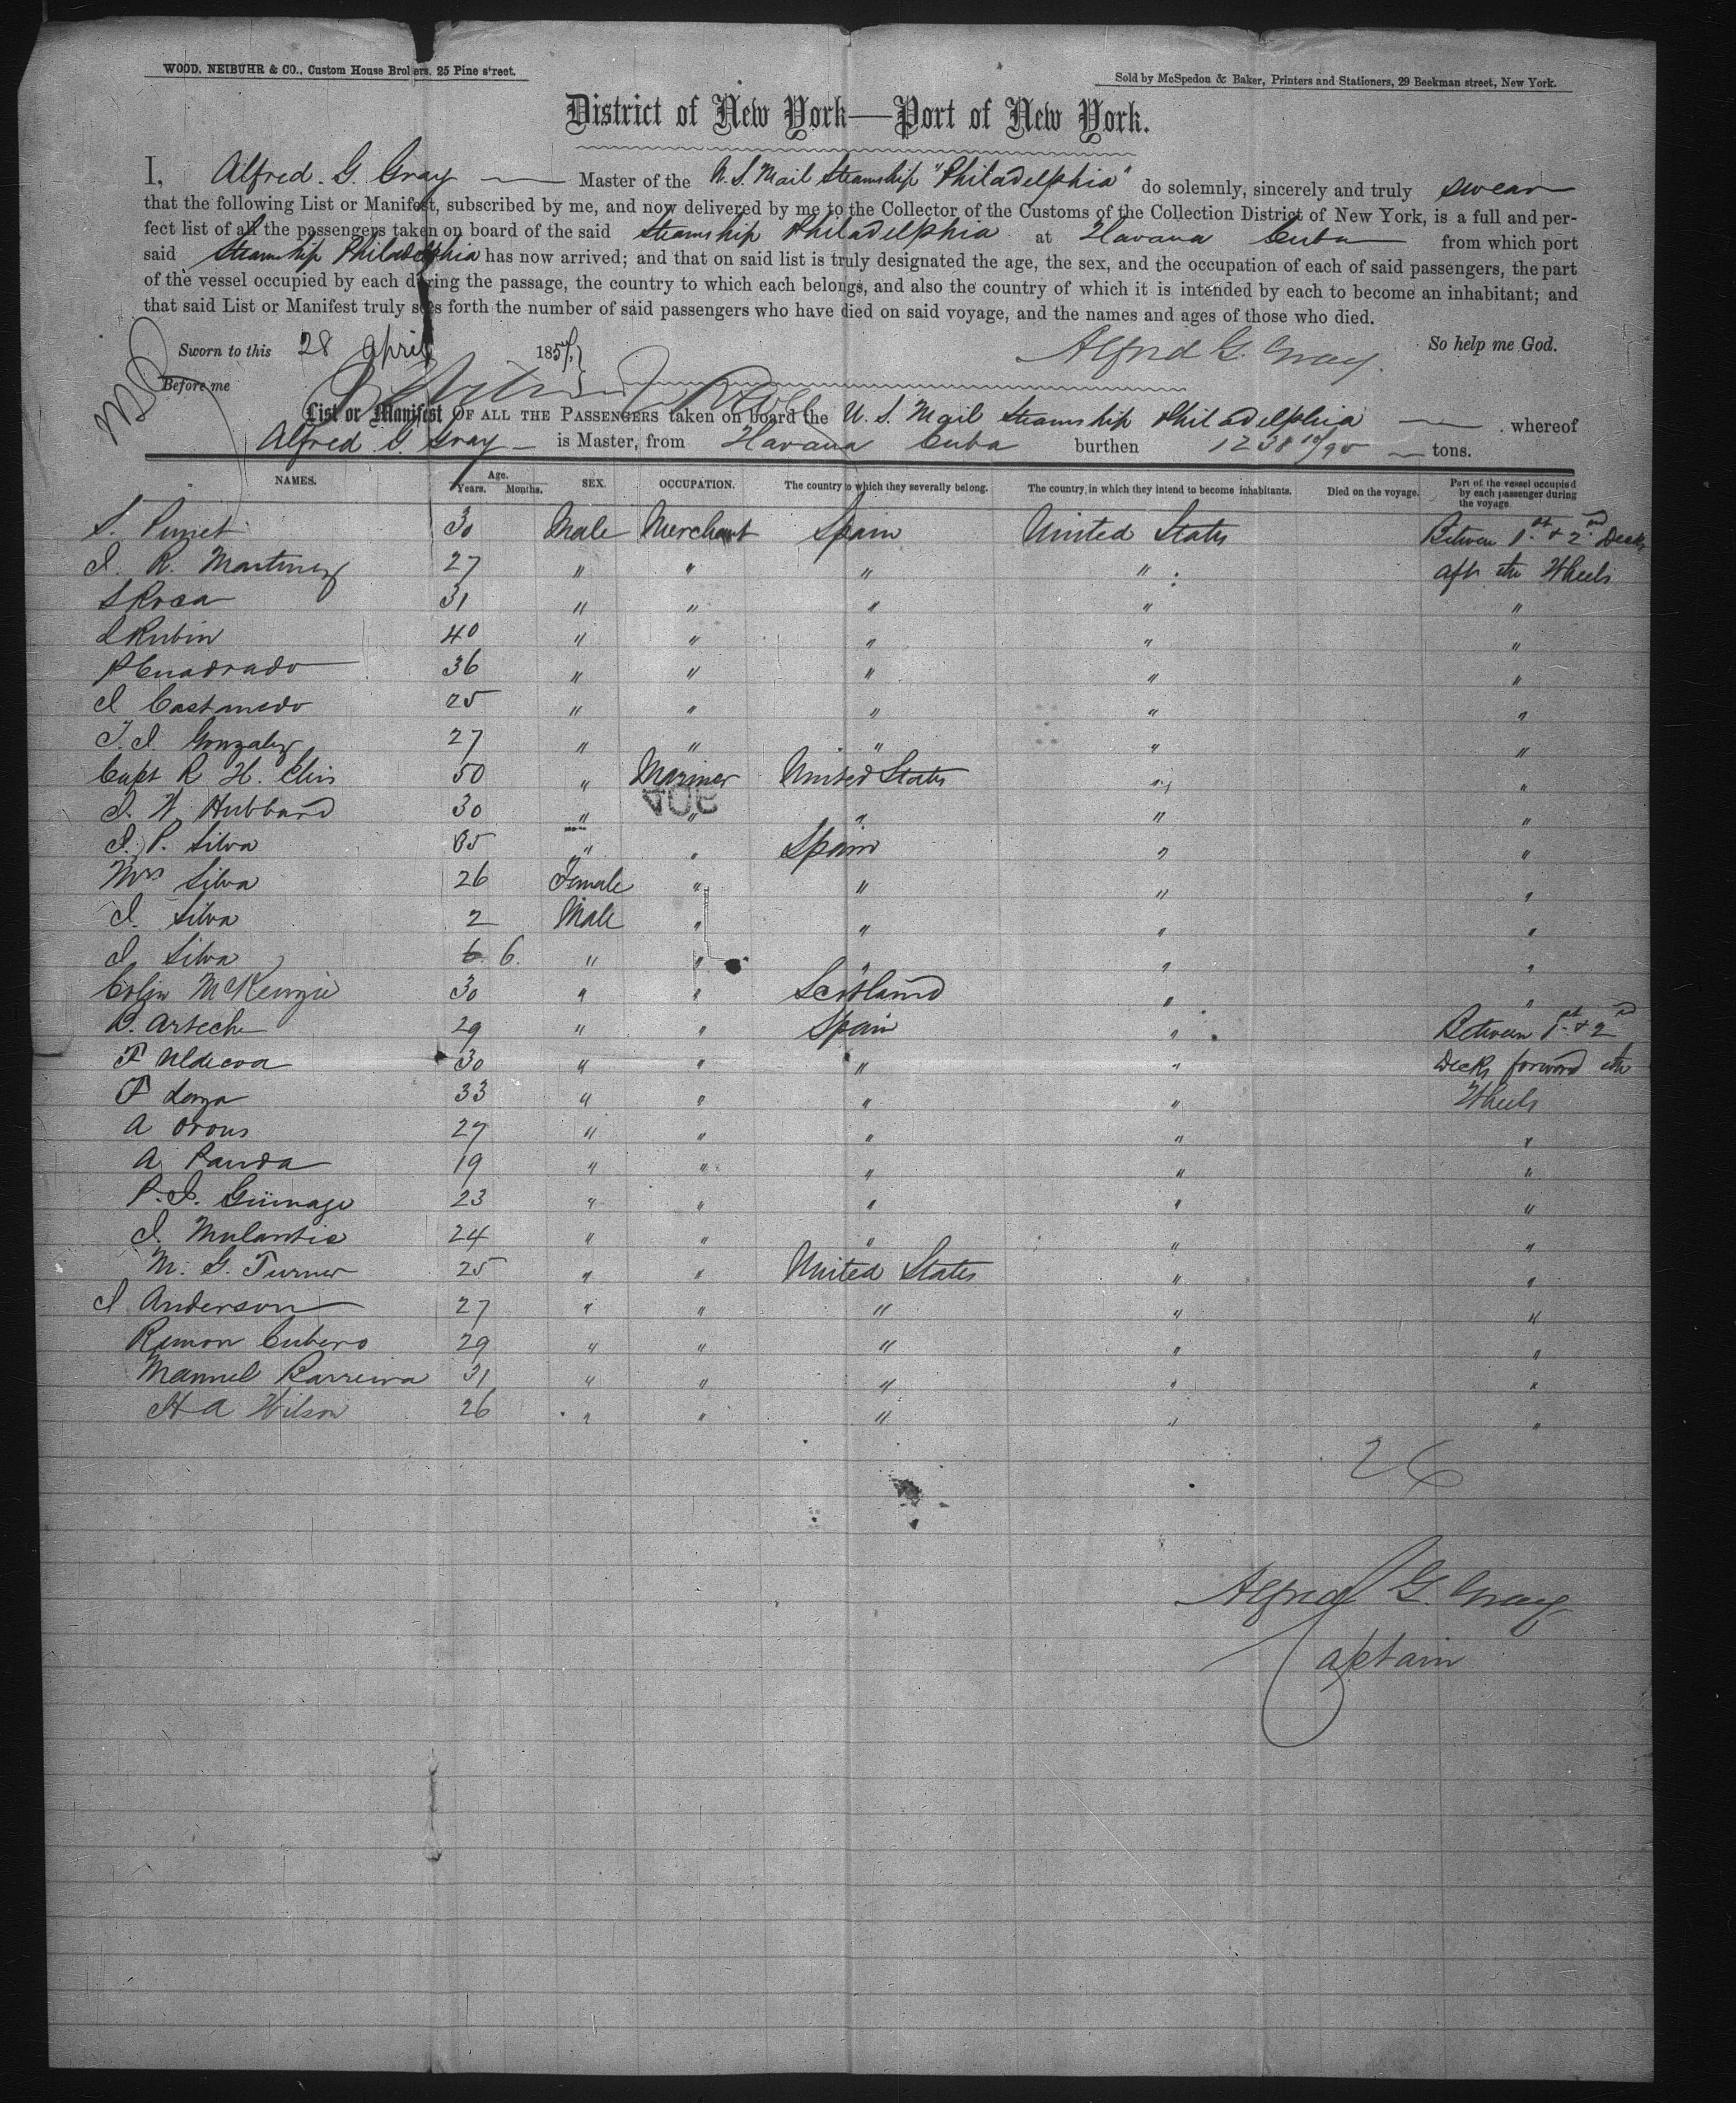 WOOD, NEIBUHR & CO., Custom House Brokers, 25 Pine street.
Sold by McSpedon & Baker, Printers and Stationers, 29 Beekman street, New York.
District of New York—Port of New York.
I, Alfred. G. Gray Master of the U. S. Mail Steamship "Philadelphia" do solemnly, sincerely and truly swear
that the following List or Manifest, subscribed by me, and now delivered by me to the Collector of the Customs of the Collection District of New York, is a full and per-
fect list of all the passengers taken on board of the said Steamship Philadelphia at Havana Cuba from which port
said Steamship Philadelphia has now arrived; and that on said list is truly designated the age, the sex, and the occupation of each of said passengers, the part
of the vessel occupied by each during the passage, the country to which each belongs, and also the country of which it is intended by each to become an inhabitant; and
that said List or Manifest truly sets forth the number of said passengers who have died on said voyage, and the names and ages of those who died.
Sworn to this 28 april 185 Alfred G. Gray. So help me God.
Before me
List or Manifest OF ALL THE PASSENGERS taken on board the U. S. Mail Steamship Philadelphia whereof
Alfred G. Gray is Master, from Havana Cuba burthen 1238 10/95 tons.
NAMES. Age. Years. Months. SEX. OCCUPATION. The country to which they severally belong. The country in which they intend to become inhabitants. Died on the voyage. Part of the vessel occupied by each passenger during the voyage
S. 30 Male Merchant Spain United States Between 1st & 2nd Decks
J. R. Martinez 27 " " " " aft the Wheels
S Roca 31 " " " " "
Rubin 40 " " " " "
P Cuadrado 36 " " " " "
J Castanedo 25 " " " " "
T. J. Gonzalez 27 " " " " "
Capt R H. 50 " Mariner United States " "
J. W. Hubbard 30 " " " " "
J. P. Silva 35 " " Spain " "
Mrs Silva 26 Female " " " "
J. Silva 2 Male " " " "
J. Silva 6. " " " " "
Colin McKenzie 30 " " Scotland " "
B. Arteche 29 " " Spain " Between 1st & 2nd
F 30 " " " " Decks forward the
F 33 " " " " Wheels
A Orous 27 " " " " "
A Panda 19 " " " " "
P. J. 23 " " " " "
J. 24 " " " " "
M. G. Turner 25 " " United States " "
J Anderson 27 " " " " "
Ramon Cubero 29 " " " " "
Manuel Barreira 31 " " " " "
H A Wilson 26 " " " " "
26
Alfred G. Gray
Captain